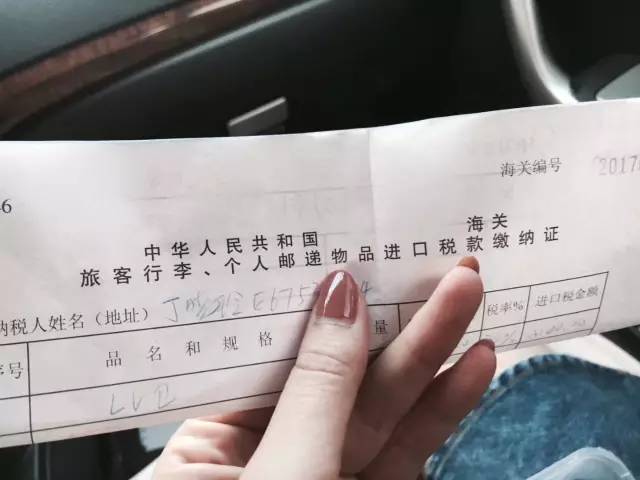 46
海关编号 2017
中华人民共和国 海关
旅客行李、个人邮递物品进口税款缴纳证
纳税人姓名(地址) 丁 E675
序号 品名和规格 量 税率% 进口税金额
LV包